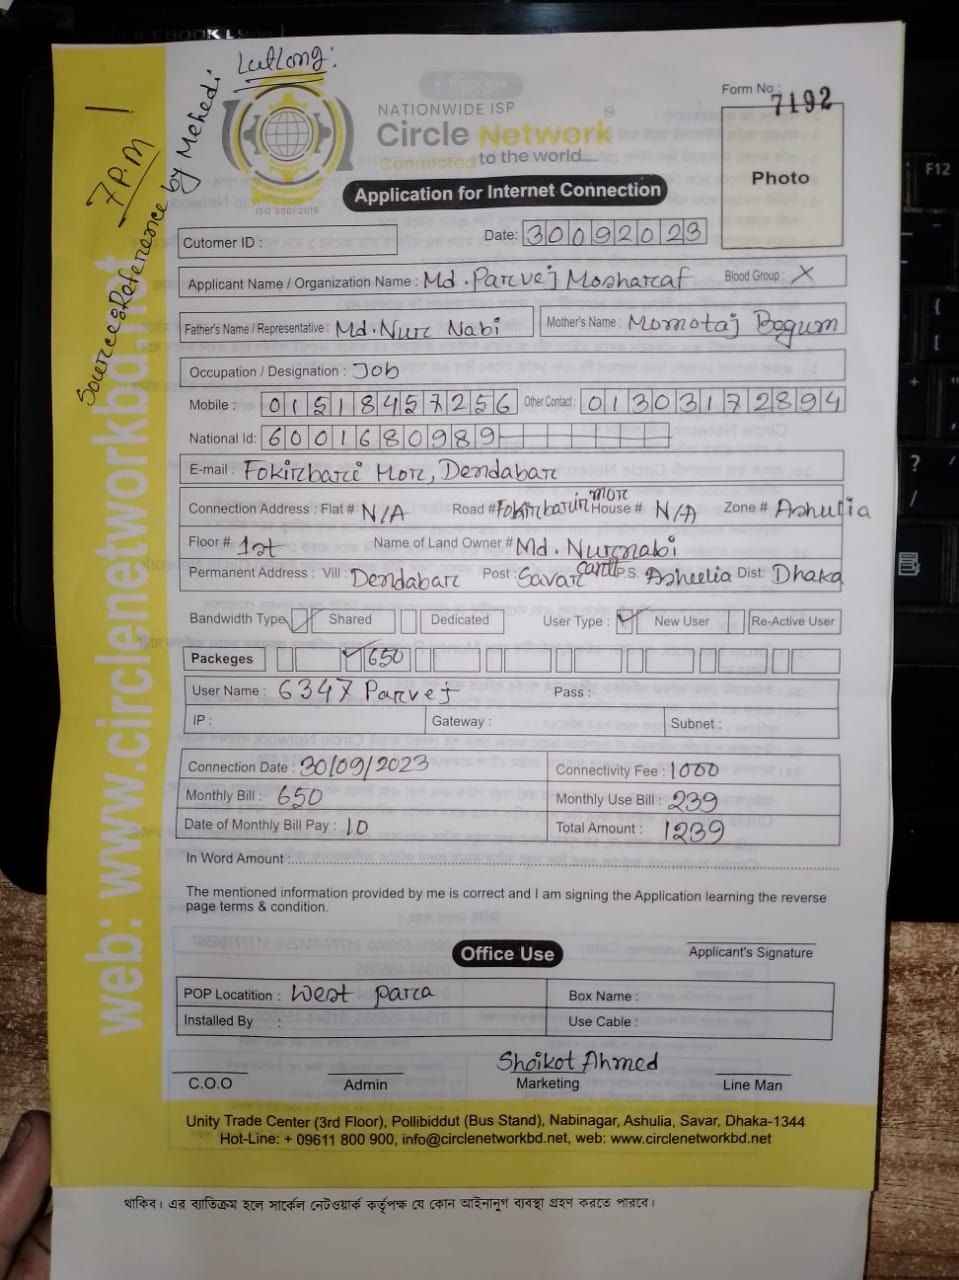 LutLong:
7 P.M
Source: Reference by Mehedi
web: www.circlenetworkbd.net
NATIONWIDE ISP
Circle Network
Connected to the world.....
ISO 9001:2015
Form No : 7192
Photo
Application for Internet Connection
Cutomer ID :
Date: 30092023
Applicant Name / Organization Name : Md. Parvej Mosharaf Blood Group : X
Father's Name / Representative : Md. Nur Nabi Mother's Name : Momotaj Begum
Occupation / Designation : Job
Mobile : 01518457256 Other Contact : 01303172894
National Id: 6001680989
E-mail : Fokirbari Mor, Dendabar
Connection Address : Flat # N/A Road # Fokirbarir mor House # N/A Zone # Ashulia
Floor # 1st Name of Land Owner # Md. Nurnabi
Permanent Address : Vill : Dendabar Post : Savar Cantt P.S. Ashulia Dist: Dhaka
Bandwidth Type Shared Dedicated User Type : New User Re-Active User
Packeges 650
User Name : 6347 Parvej Pass :
IP : Gateway : Subnet :
Connection Date : 30/09/2023 Connectivity Fee : 1000
Monthly Bill : 650 Monthly Use Bill : 239
Date of Monthly Bill Pay : 10 Total Amount : 1239
In Word Amount :
The mentioned information provided by me is correct and I am signing the Application learning the reverse
page terms & condition.
Office Use
Applicant's Signature
POP Locatition : West para Box Name :
Installed By : Use Cable :
Shoikot Ahmed
C.O.O Admin Marketing Line Man
Unity Trade Center (3rd Floor), Pollibiddut (Bus Stand), Nabinagar, Ashulia, Savar, Dhaka-1344
Hot-Line: + 09611 800 900, info@circlenetworkbd.net, web: www.circlenetworkbd.net
থাকিব। এর ব্যাতিক্রম হলে সার্কেল নেটওয়ার্ক কর্তৃপক্ষ যে কোন আইনানুগ ব্যবস্থা গ্রহণ করতে পারবে।
F12